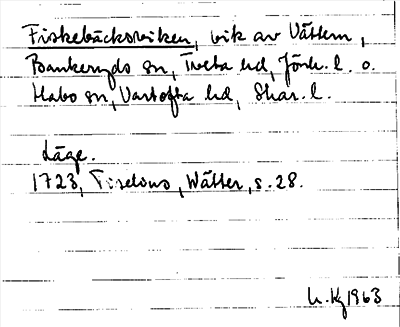 Fiskebäcksviken, vik av Vättern,
Bankeryds sn, Tveta hd, Jönk. l. o.
Habo sn, Vartofta hd, Skar. l.
Läge.
1723, Tiselius, Wätter, s. 28.
1963